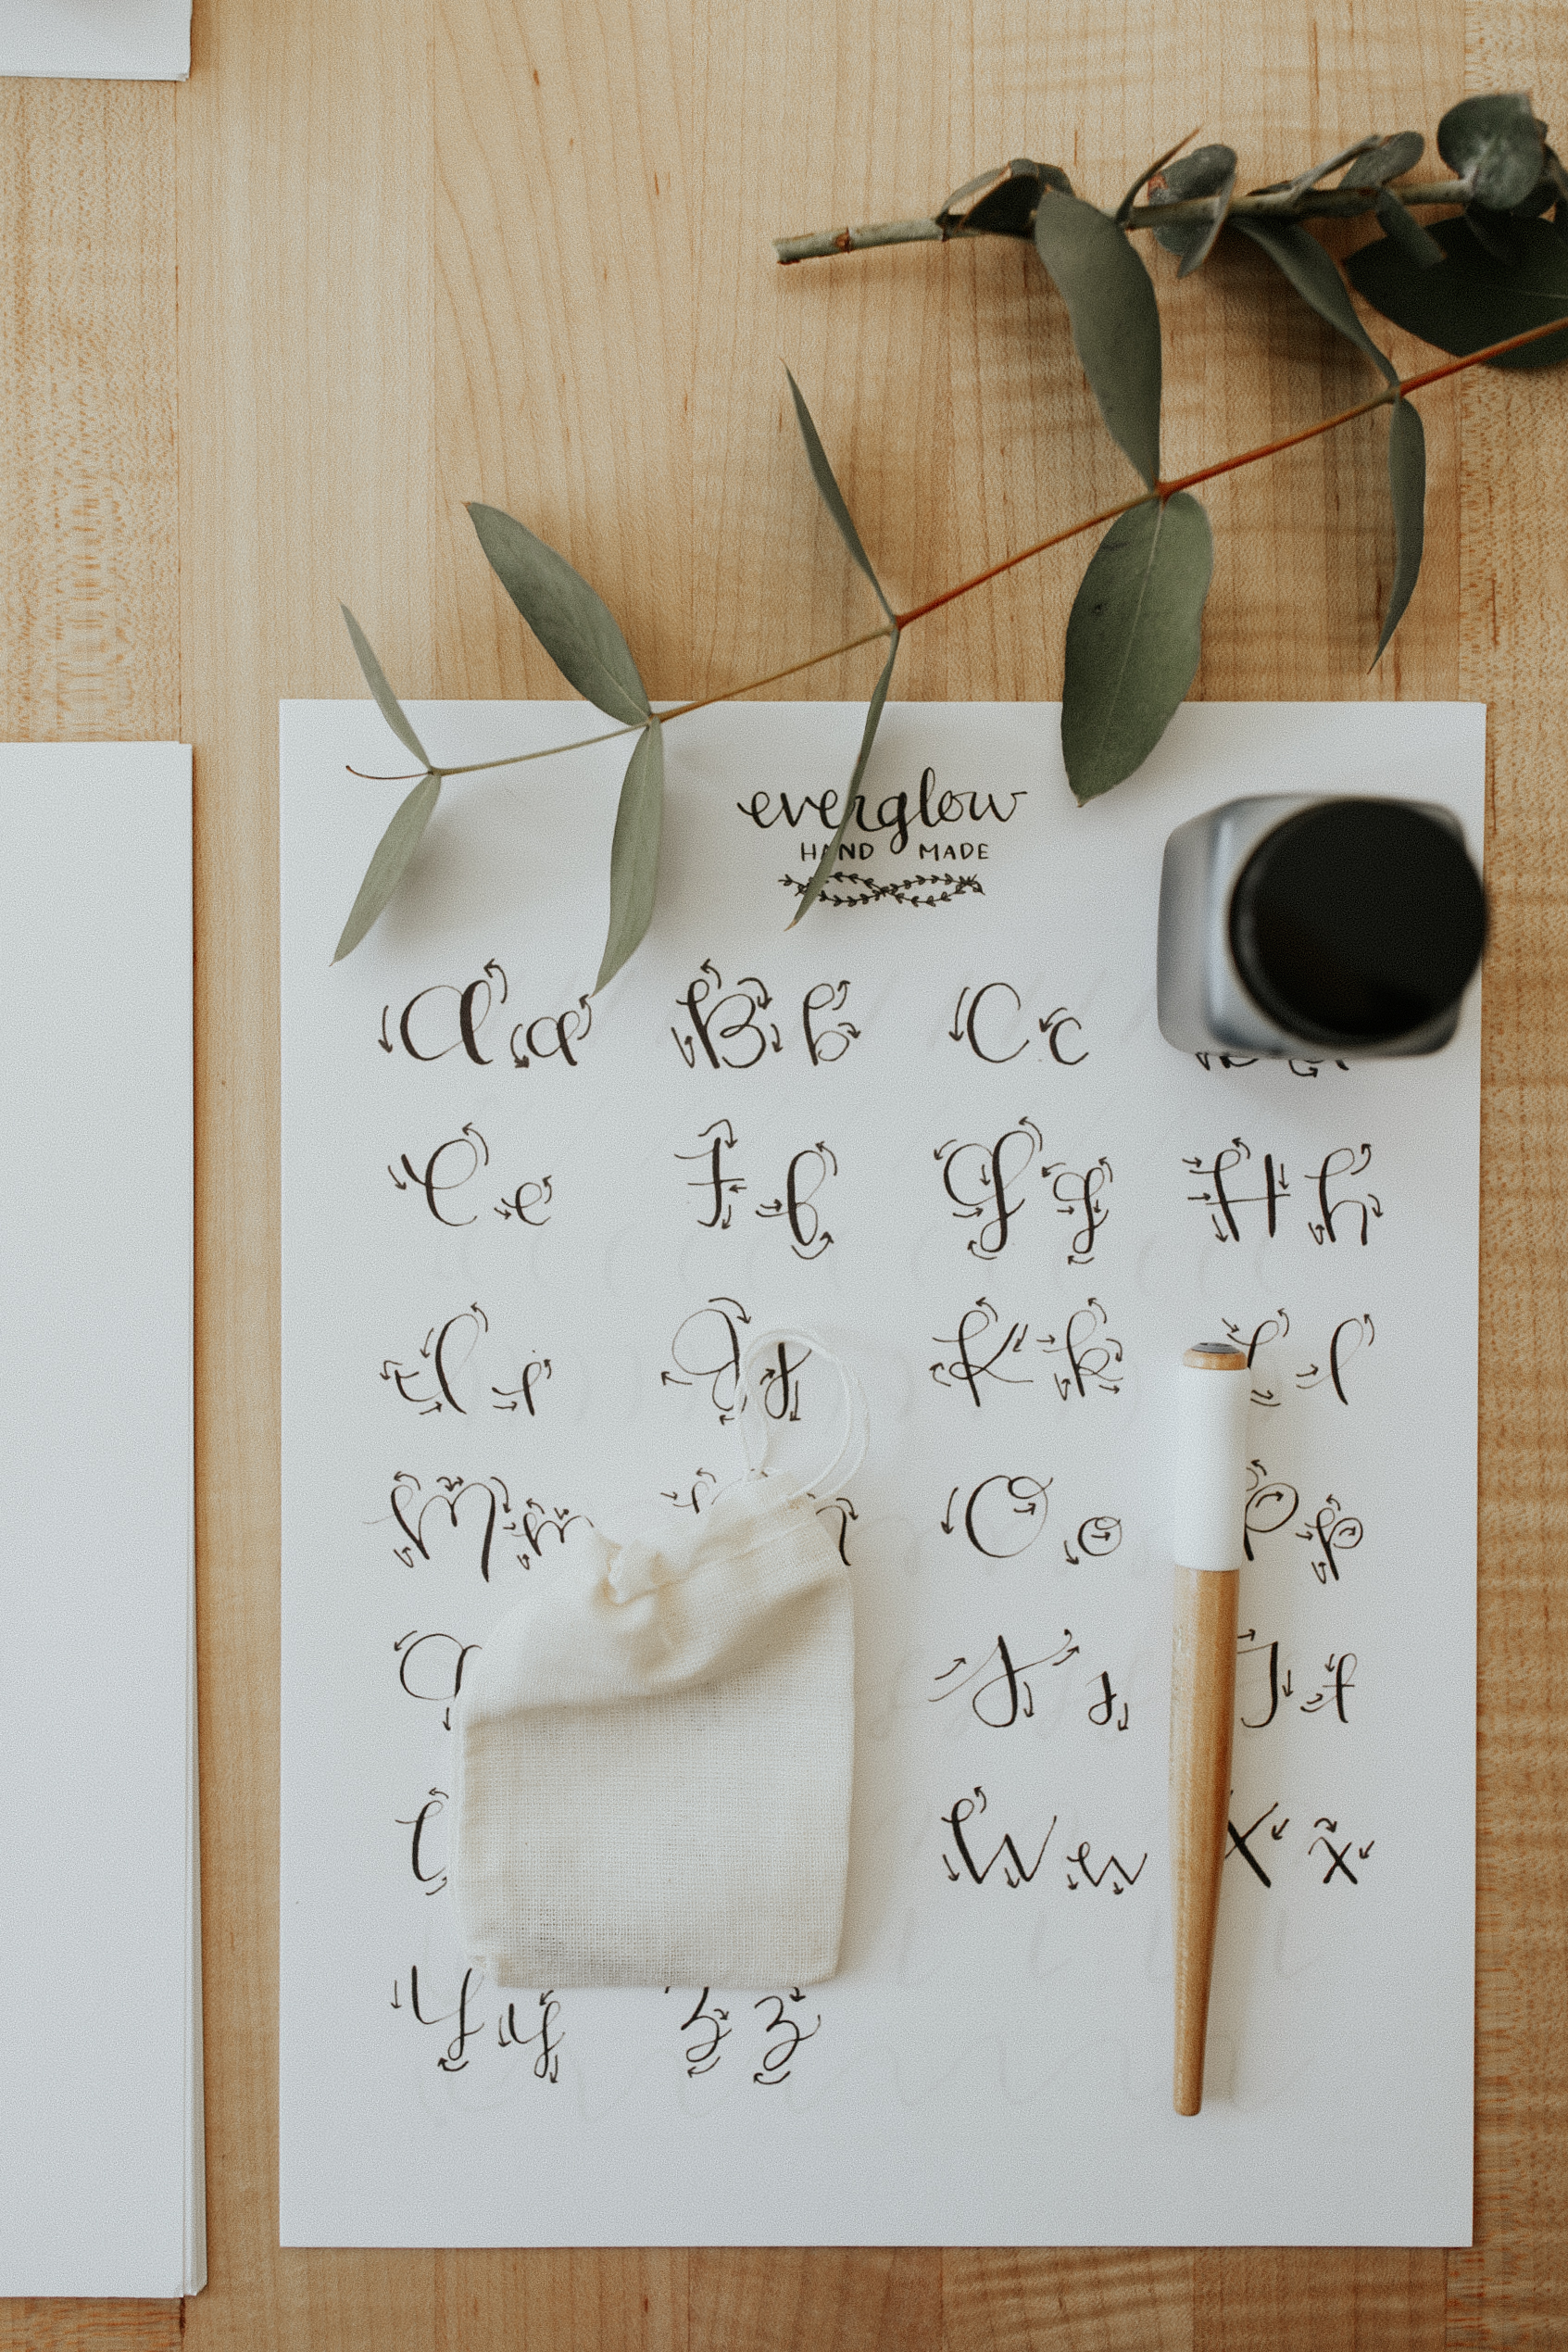 everglow
HAND MADE
Aa Bb Cc
Ee Ff Gg Hh
Ii Jj Kk Ll
Mm Oo Pp
Q Ss Tt
Ww Xx
Yy Zz